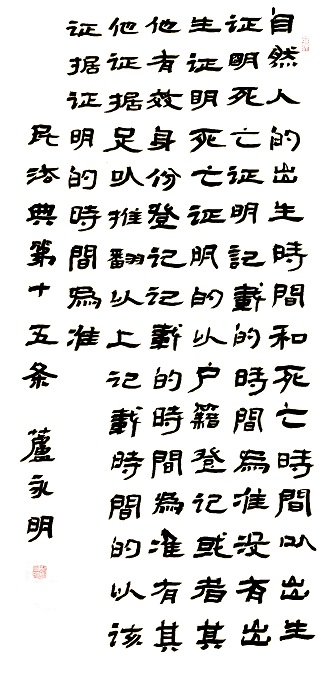 自然人的出生時間和死亡時間以出生
证明死亡证明記載的時間為准没有出
生证明死亡证明的以户籍登记或者其
他有效身份登记记載的時間為准有其
他证据足以推翻以上记載時間的以该
证据证明的時間為准
民法典第十五条 蘆永明